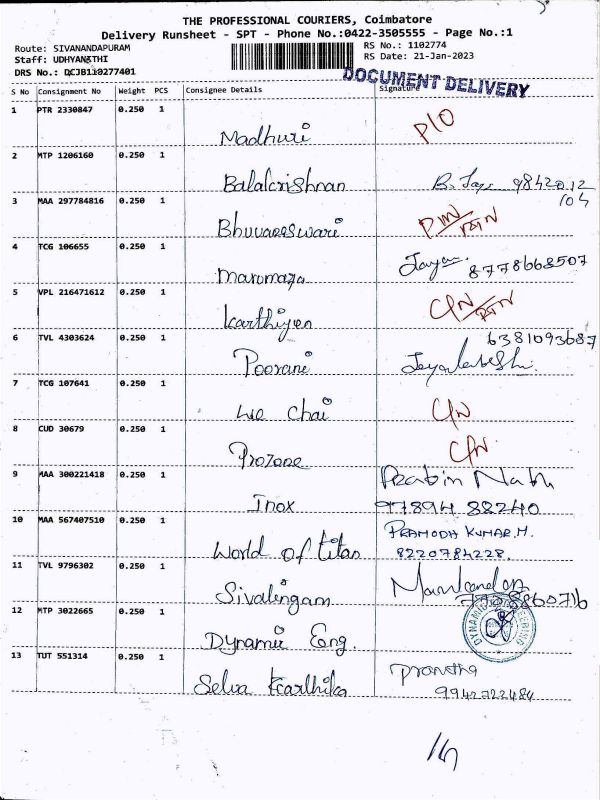 THE PROFESSIONAL COURIERS, Coimbatore
Delivery Runsheet - SPT - Phone No.:0422-3505555 - Page No.:1
Route: SIVANANDAPURAM
Staff: UDHYANSTHI
DRS No.: DCJB110277401
RS No.: 1102774
RS Date: 21-Jan-2023
DOCUMENT DELIVERY
S No Consignment No Weight PCS Consignee Details Signature
1 PTR 2330847 0.250 1 Madhuri P/O
2 MTP 1206160 0.250 1 Balakrishnan
3 MAA 297784816 0.250 1 Bhuvaneswari
4 TCG 106655 0.250 1 8778668507
5 VPL 216471612 0.250 1 Karthiyen
6 TVL 4303624 0.250 1 Poorani 6381093687
7 TCG 107641 0.250 1 Chai C/N
8 CUD 30679 0.250 1 Prozone C/N
9 MAA 300221418 0.250 1 Inox 97894 88240
10 MAA 567407510 0.250 1 World of titan PRAMODH KUMAR.M.
8220784228.
11 TVL 9796302 0.250 1 Sivalingam
12 MTP 3022665 0.250 1 Dynamic Eng.
13 TUT 551314 0.250 1 Selva Karthika
9942722484